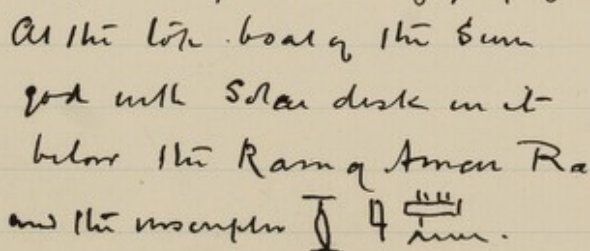 At the top boat of the Sun
god with Solar disk in it
below the Ram of Amen Ra
and the inscription 𓇓 𓇋 𓏠𓈖.